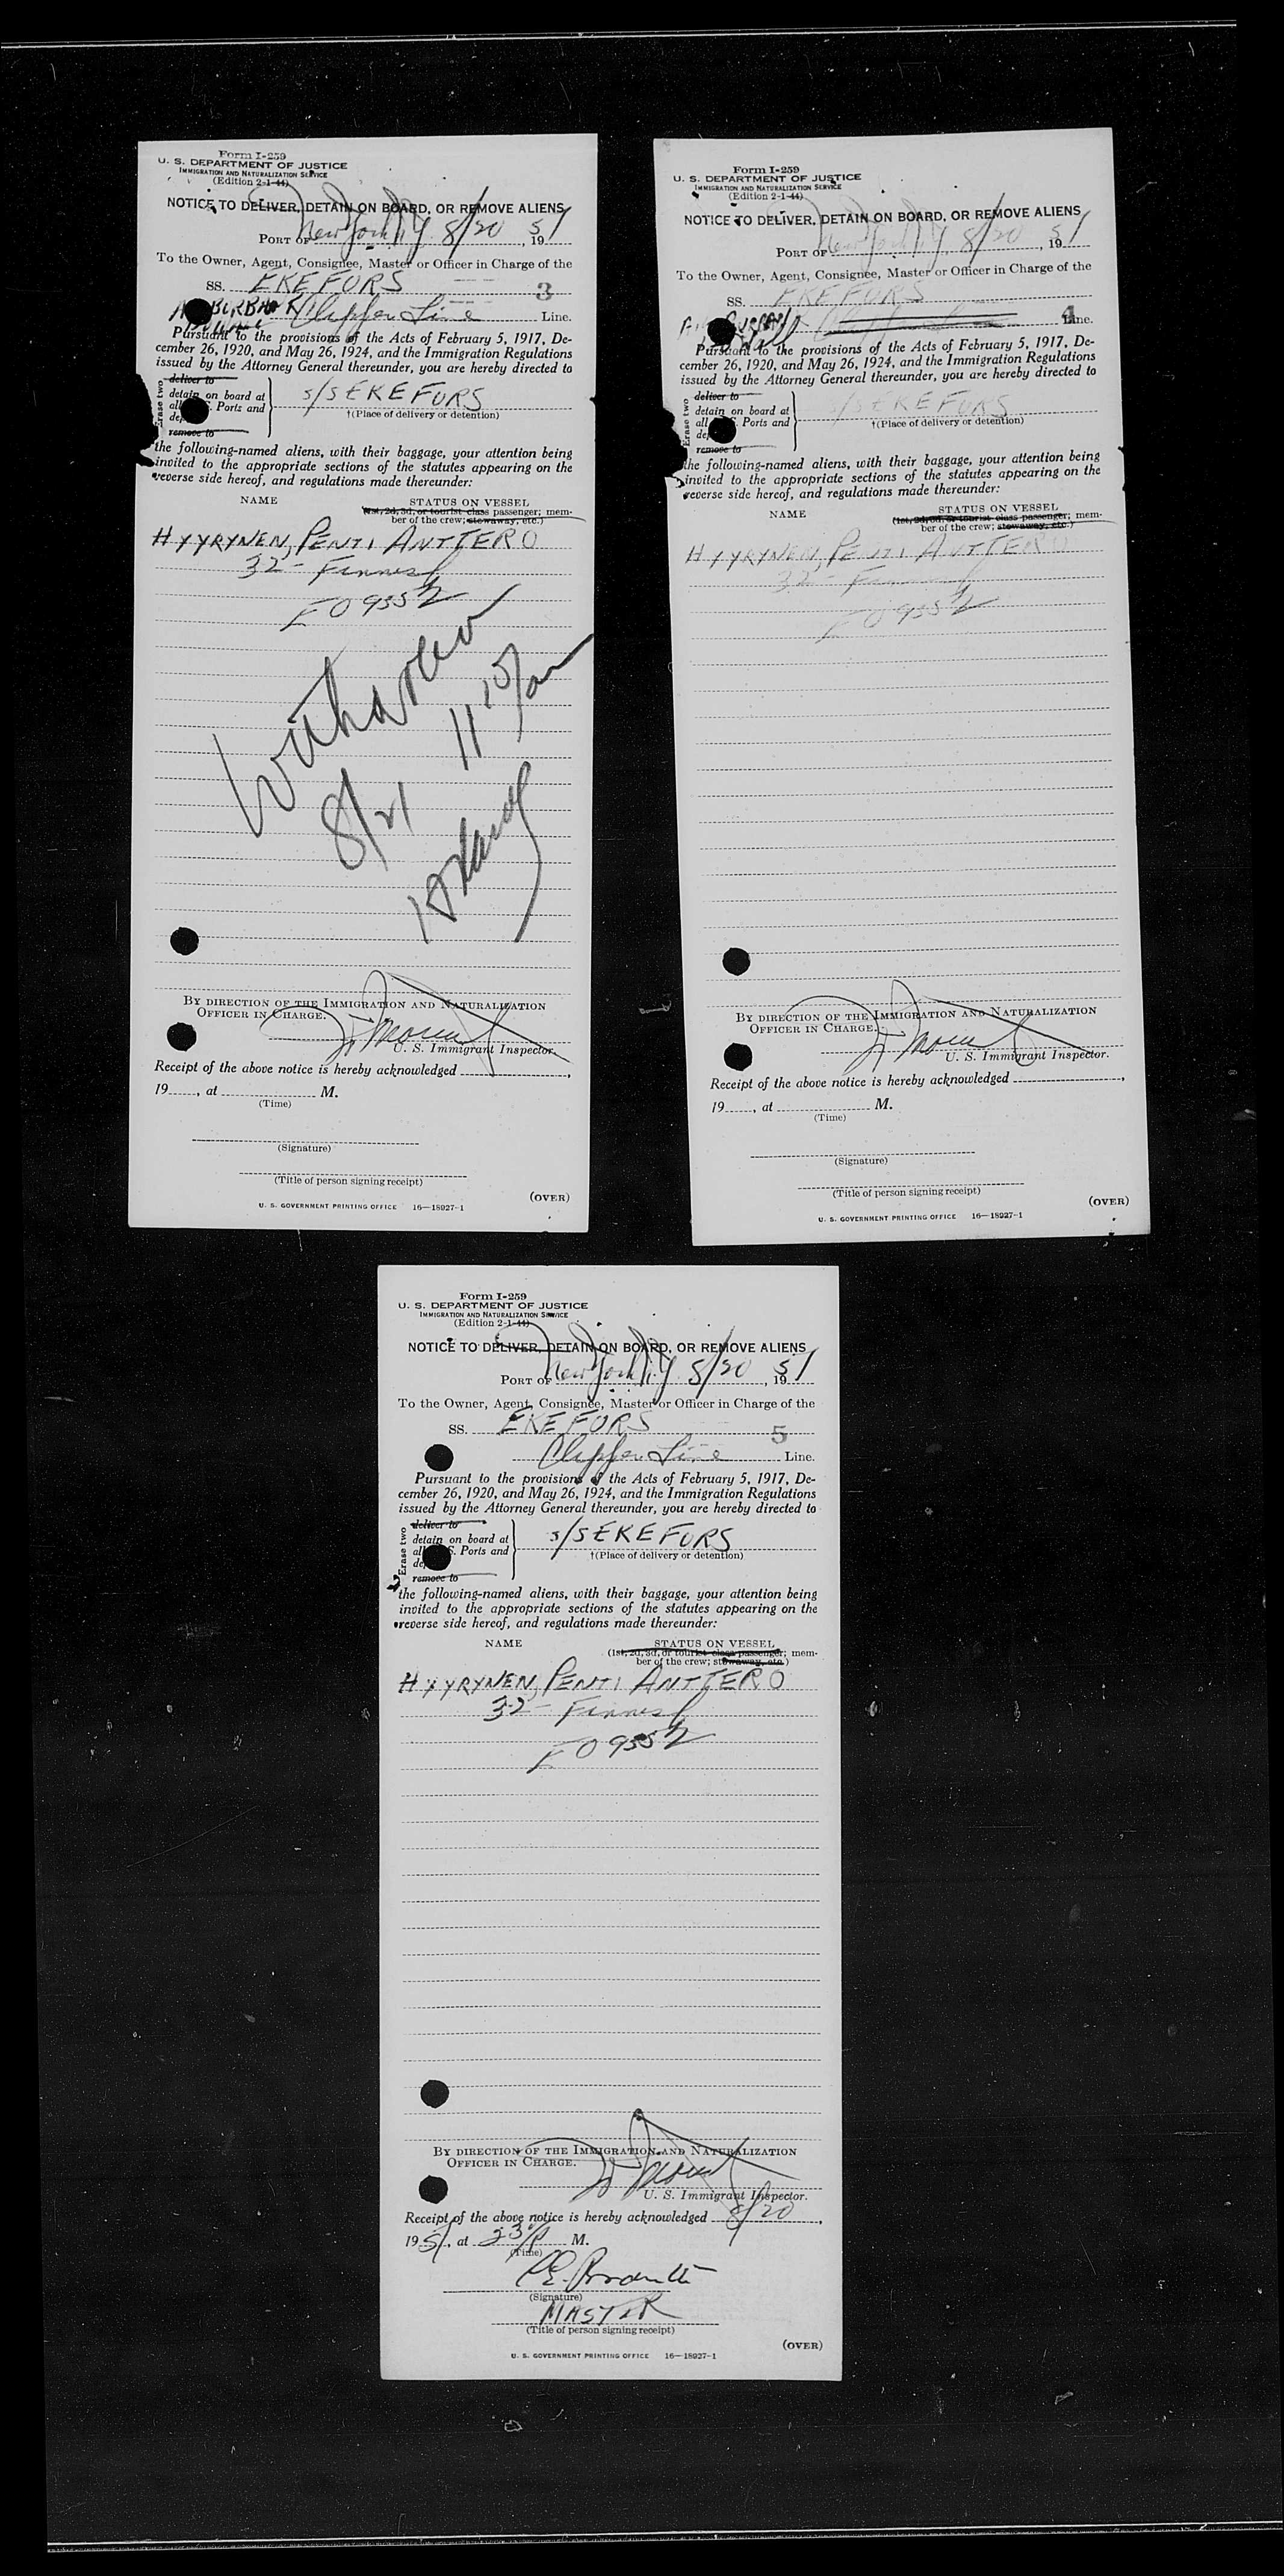 Form I-259
U. S. DEPARTMENT OF JUSTICE
IMMIGRATION AND NATURALIZATION SERVICE
(Edition 2-1-44)
NOTICE TO DELIVER, DETAIN ON BOARD, OR REMOVE ALIENS
PORT OF New York NY 8/20, 1951
To the Owner, Agent, Consignee, Master or Officer in Charge of the
SS. EKEFORS 3
Clipper Line Line.
Pursuant to the provisions of the Acts of February 5, 1917, De-
cember 26, 1920, and May 26, 1924, and the Immigration Regulations
issued by the Attorney General thereunder, you are hereby directed to
Erase two
deliver to
detain on board at
all S. Ports and
remove to
s/s EKEFORS
†(Place of delivery or detention)
the following-named aliens, with their baggage, your attention being
invited to the appropriate sections of the statutes appearing on the
reverse side hereof, and regulations made thereunder:
NAME STATUS ON VESSEL
(1st, 2d, 3d, or tourist class passenger; mem-
ber of the crew; stowaway, etc.)
HYYRYNEN, PENTI ANTTERO
32 - Finnish
9352
Withdrawn
8/21 11 10/am
BY DIRECTION OF THE IMMIGRATION AND NATURALIZATION
OFFICER IN CHARGE.
U. S. Immigrant Inspector.
Receipt of the above notice is hereby acknowledged
19, at M.
(Time)
(Signature)
(Title of person signing receipt)
(OVER)
U. S. GOVERNMENT PRINTING OFFICE 16—18927-1
Form I-259
U. S. DEPARTMENT OF JUSTICE
IMMIGRATION AND NATURALIZATION SERVICE
(Edition 2-1-44)
NOTICE TO DELIVER, DETAIN ON BOARD, OR REMOVE ALIENS
PORT OF New York NY 8/20, 1951
To the Owner, Agent, Consignee, Master or Officer in Charge of the
SS. EKEFORS 4
Line.
Pursuant to the provisions of the Acts of February 5, 1917, De-
cember 26, 1920, and May 26, 1924, and the Immigration Regulations
issued by the Attorney General thereunder, you are hereby directed to
Erase two
deliver to
detain on board at
all S. Ports and
remove to
s/s EKEFORS
†(Place of delivery or detention)
the following-named aliens, with their baggage, your attention being
invited to the appropriate sections of the statutes appearing on the
reverse side hereof, and regulations made thereunder:
NAME STATUS ON VESSEL
(1st, 2d, 3d, or tourist class passenger; mem-
ber of the crew; stowaway, etc.)
HYYRYNEN, PENTI ANTTERO
32 - Finnish
9352
BY DIRECTION OF THE IMMIGRATION AND NATURALIZATION
OFFICER IN CHARGE.
U. S. Immigrant Inspector.
Receipt of the above notice is hereby acknowledged
19, at M.
(Time)
(Signature)
(Title of person signing receipt)
(OVER)
U. S. GOVERNMENT PRINTING OFFICE 16—18927-1
Form I-259
U. S. DEPARTMENT OF JUSTICE
IMMIGRATION AND NATURALIZATION SERVICE
(Edition 2-1-44)
NOTICE TO DELIVER, DETAIN ON BOARD, OR REMOVE ALIENS
PORT OF New York NY 8/20, 1951
To the Owner, Agent, Consignee, Master or Officer in Charge of the
SS. EKEFORS 5
Clipper Line Line.
Pursuant to the provisions of the Acts of February 5, 1917, De-
cember 26, 1920, and May 26, 1924, and the Immigration Regulations
issued by the Attorney General thereunder, you are hereby directed to
Erase two
deliver to
detain on board at
all S. Ports and
remove to
s/s EKEFORS
†(Place of delivery or detention)
the following-named aliens, with their baggage, your attention being
invited to the appropriate sections of the statutes appearing on the
reverse side hereof, and regulations made thereunder:
NAME STATUS ON VESSEL
(1st, 2d, 3d, or tourist class passenger; mem-
ber of the crew; stowaway, etc.)
HYYRYNEN, PENTI ANTTERO
32 - Finnish
9352
BY DIRECTION OF THE IMMIGRATION AND NATURALIZATION
OFFICER IN CHARGE.
U. S. Immigrant Inspector.
Receipt of the above notice is hereby acknowledged 8/20,
1951, at 230 P M.
(Time)
(Signature)
MASTER
(Title of person signing receipt)
(OVER)
U. S. GOVERNMENT PRINTING OFFICE 16—18927-1